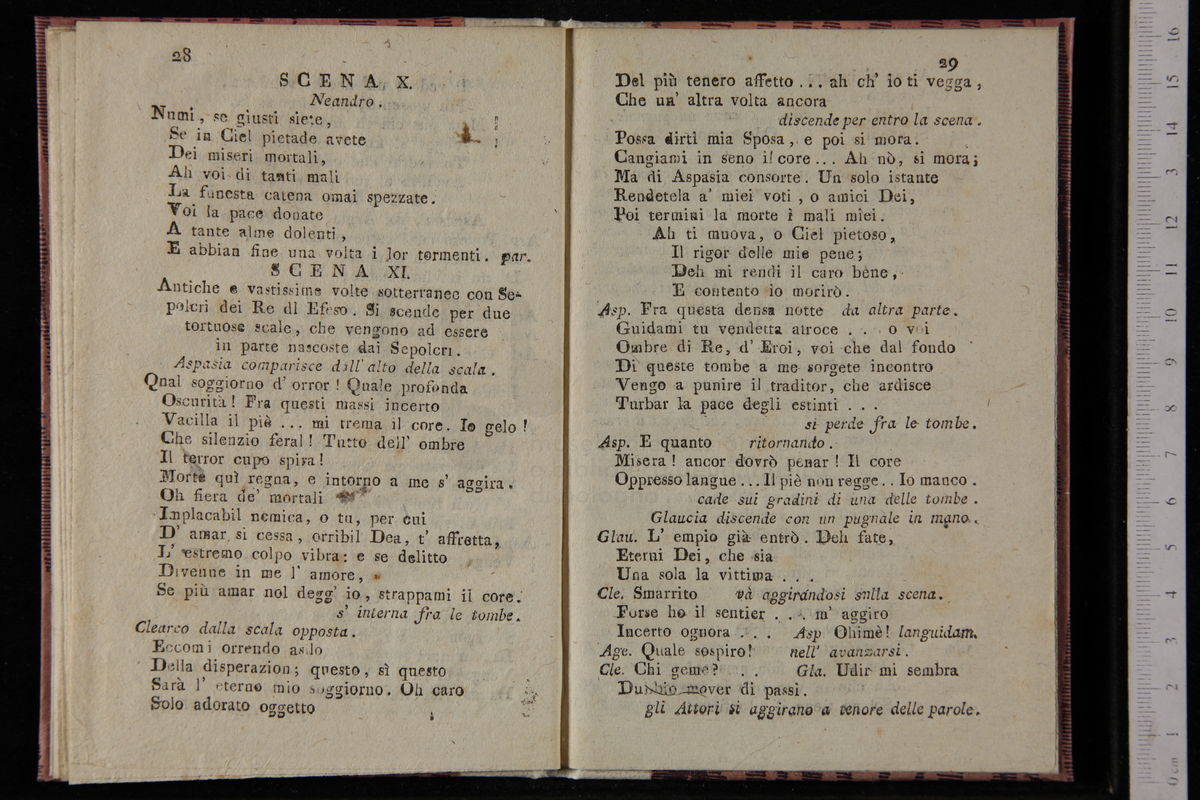 28
SCENA X.
Neandro.
Numi, se giusti siete,
Se in Ciel pietade avete
Dei miseri mortali,
Ah voi di tanti mali
La funesta catena omai spezzate.
Voi la pace donate
A tante alme dolenti,
E abbian fine una volta i lor tormenti. par.
SCENA XI.
Antiche e vastissime volte sotterranee con Se-
polcri dei Re di Efeso. Si scende per due
tortuose scale, che vengono ad essere
in parte nascoste dai Sepolcri.
Aspasia comparisce dall' alto della scala.
Qual soggiorno d' orror! Quale profonda
Oscurità! Fra questi massi incerto
Vacilla il piè ... mi trema il core. Io gelo!
Che silenzio feral! Tutto dell' ombre
Il terror cupo spira!
Morte quì regna, e intorno a me s' aggira.
Oh fiera de' mortali
Implacabil nemica, o tu, per cui
D' amar si cessa, orribil Dea, t' affretta,
L' estremo colpo vibra: e se delitto
Divenne in me l' amore,
Se più amar nol degg' io, strappami il core.
s' interna fra le tombe.
Clearco dalla scala opposta.
Eccomi orrendo asilo
Della disperazion; questo, sì questo
Sarà l' eterno mio soggiorno. Oh caro
Solo adorato oggetto
29
Del più tenero affetto ... ah ch' io ti vegga,
Che un' altra volta ancora
discende per entro la scena.
Possa dirti mia Sposa, e poi si mora.
Cangiami in seno il core ... Ah nò, si mora;
Ma di Aspasia consorte. Un solo istante
Rendetela a' miei voti, o amici Dei,
Poi termini la morte i mali miei.
Ah ti muova, o Ciel pietoso,
Il rigor delle mie pene;
Deh mi rendi il caro bène,
E contento io morirò.
Asp. Fra questa densa notte da altra parte.
Guidami tu vendetta atroce . . . o voi
Ombre di Re, d' Eroi, voi che dal fondo
Di queste tombe a me sorgete incontro
Vengo a punire il traditor, che ardisce
Turbar la pace degli estinti . . .
si perde fra le tombe.
Asp. E quanto ritornando.
Misera! ancor dovrò penar! Il core
Oppresso langue ... Il piè non regge.. Io manco.
cade sui gradini di una delle tombe.
Glaucia discende con un pugnale in mano.
Glau. L' empio già entrò. Deh fate,
Eterni Dei, che sia
Una sola la vittima . . .
Cle. Smarrito và aggirándosi sulla scena.
Forse ho il sentier . . . m' aggiro
Incerto ognora . . . Asp Ohimè! languidam.
Age. Quale sospiro! nell' avanzarsi.
Cle. Chi geme? . . Gla. Udir mi sembra
Dubbio mover di passi.
gli Attori si aggirano a tenore delle parole.